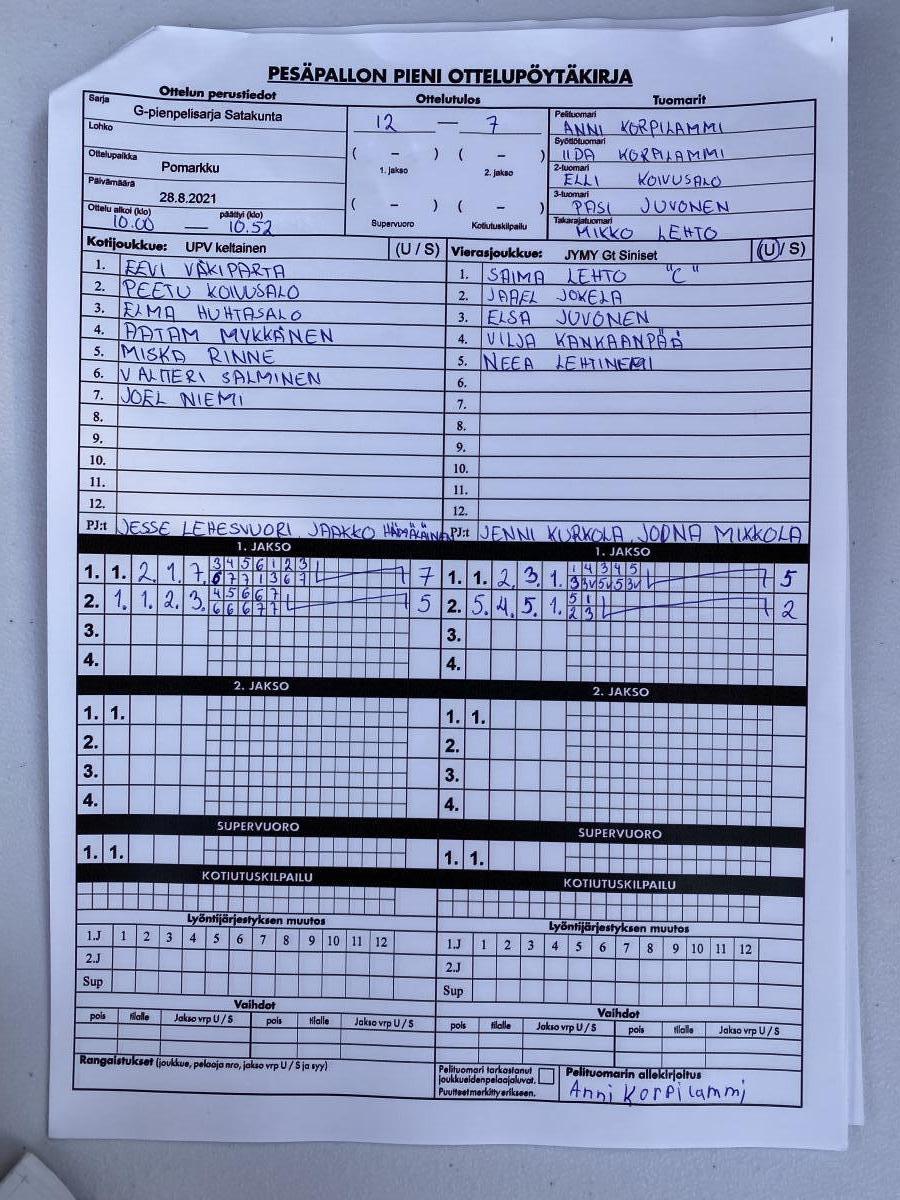 PESÄPALLON PIENI OTTELUPÖYTÄKIRJA
Ottelun perustiedot
Ottelutulos
Tuomarit
Sarja
G-pienpelisarja Satakunta
Lohko
Ottelupaikka
Pomarkku
Päivämäärä
28.8.2021
Ottelu alkoi (klo)
päättyi (klo)
10.00 — 10.52
12 — 7
( - ) ( - )
1. jakso 2. jakso
( - ) ( - )
Supervuoro Kotiutuskilpailu
Pelituomari
ANNI KORPILAMMI
Syöttötuomari
IIDA KORPILAMMI
2-tuomari
ELLI KOIVUSALO
3-tuomari
PASI JUVONEN
Takarajatuomari
MIKKO LEHTO
Kotijoukkue: UPV keltainen (U / S)
1. EEVI VÄKIPARTA
2. PEETU KOIVUSALO
3. ELMA HUHTASALO
4. AATAM MYKKÄNEN
5. MISKA RINNE
6. VALTTERI SALMINEN
7. JOEL NIEMI
8.
9.
10.
11.
12.
PJ:t JESSE LEHESVUORI, JAAKKO HÄMÄLÄINEN
Vierasjoukkue: JYMY Gt Siniset (U / S)
1. SAIMA LEHTO "C"
2. JAAEL JOKELA
3. ELSA JUVONEN
4. VILJA KANKAANPÄÄ
5. NEEA LEHTINEMI
6.
7.
8.
9.
10.
11.
12.
PJ:t JENNI KURKOLA, JOONA MIKKOLA
1. JAKSO
1. 1. 2. 1. 7. 3 4 5 6 1 2 3 7
6 7 7 1 3 6 7
2. 1. 1. 2. 3. 4 5 6 6 7 5
6 6 6 7 7
3.
4.
1. JAKSO
1. 1. 2. 3. 1. 1 4 3 4 5 5
3 3v 5v 5 3v
2. 5. 4. 5. 1. 5 1 2
2 3
3.
4.
2. JAKSO
1. 1.
2.
3.
4.
2. JAKSO
1. 1.
2.
3.
4.
SUPERVUORO
1. 1.
SUPERVUORO
1. 1.
KOTIUTUSKILPAILU
KOTIUTUSKILPAILU
Lyöntijärjestyksen muutos
1.J 1 2 3 4 5 6 7 8 9 10 11 12
2.J
Sup
Lyöntijärjestyksen muutos
1.J 1 2 3 4 5 6 7 8 9 10 11 12
2.J
Sup
Vaihdot
pois tilalle Jakso vrp U / S pois tilalle Jakso vrp U / S
Vaihdot
pois tilalle Jakso vrp U / S pois tilalle Jakso vrp U / S
Rangaistukset (joukkue, pelaaja nro, jakso vrp U / S ja syy)
Pelituomari tarkastanut
joukkueidenpelaajaluvat.
Puutteet merkitty erikseen.
Pelituomarin allekirjoitus
Anni Korpilammi